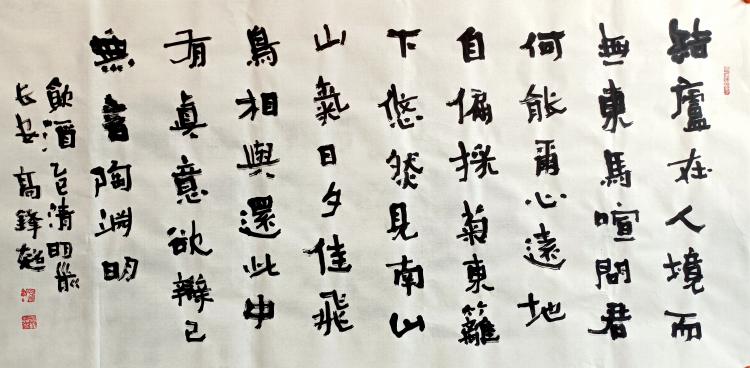 結廬在人境而
無車馬喧問君
何能爾心遠地
自偏採菊東籬
下悠然見南山
山氣日夕佳飛
鳥相與還此中
有真意欲辯已
無言陶淵明
飲酒乙巳清明前
长安高鋒